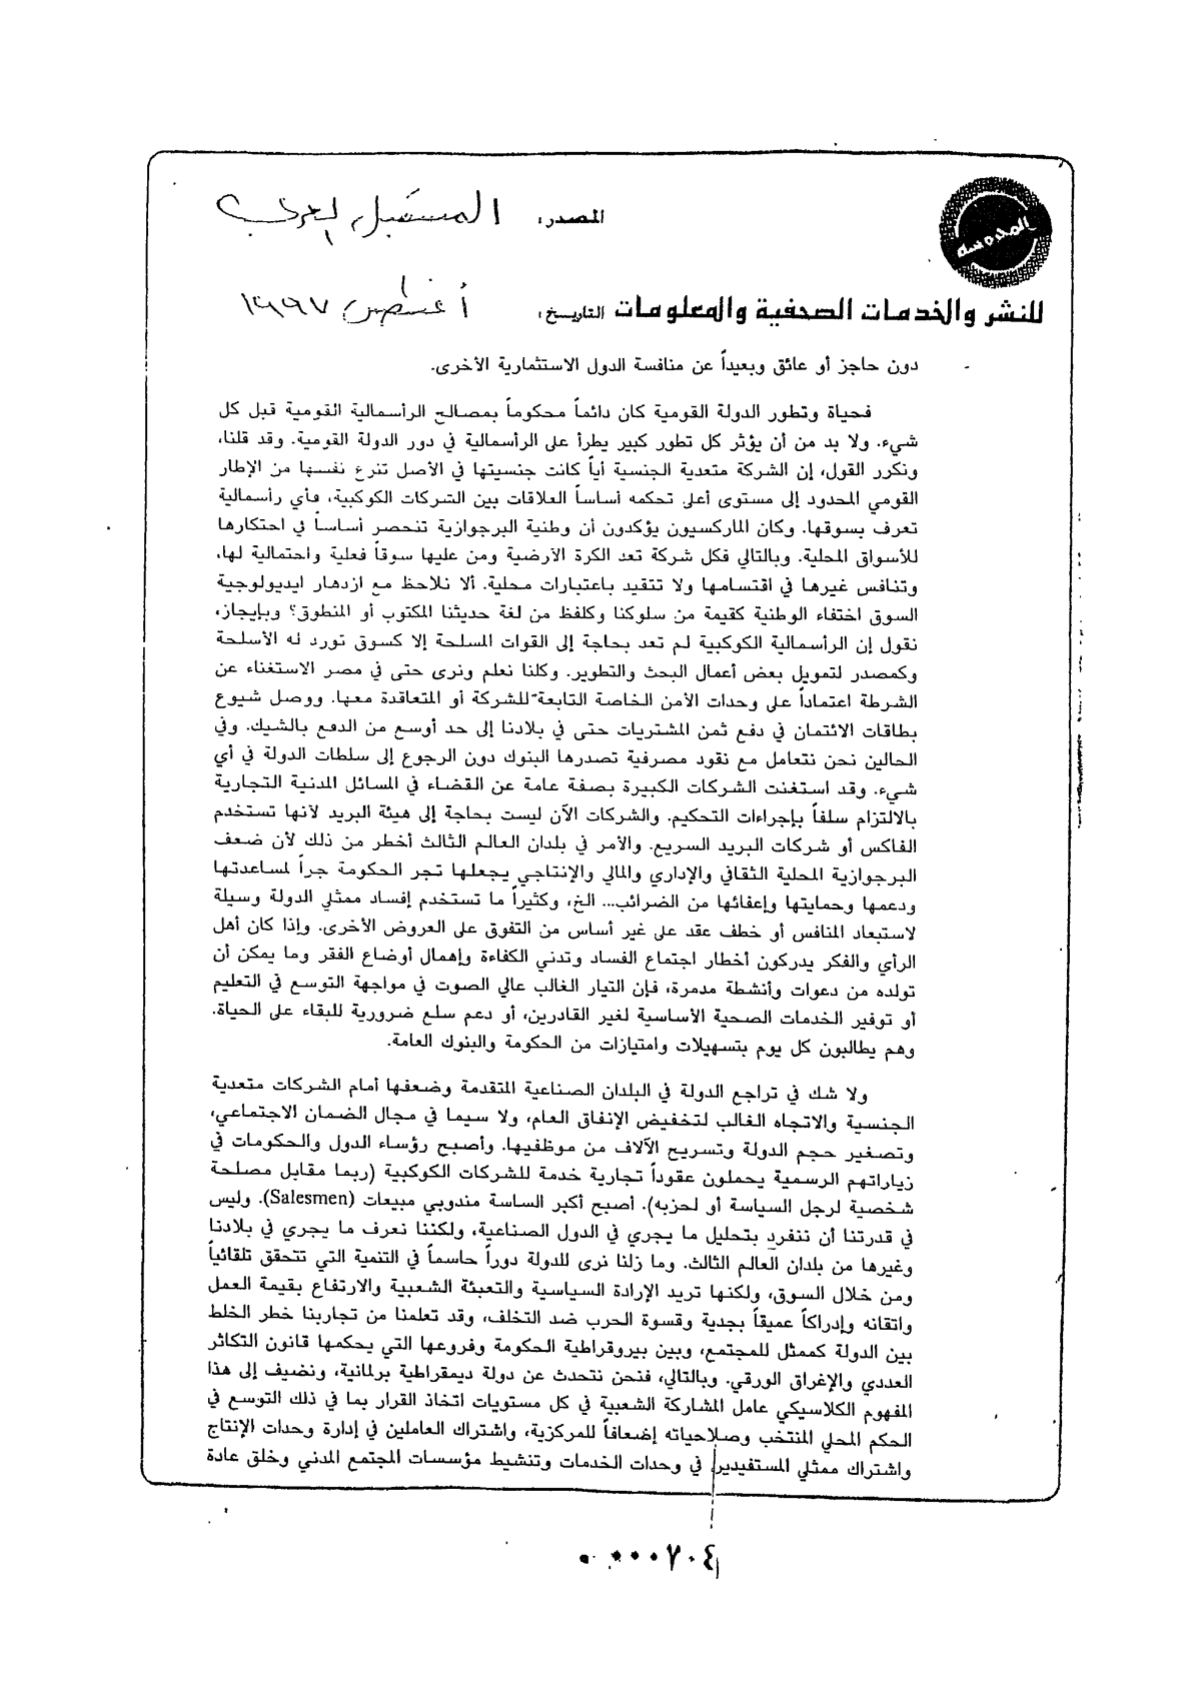 المصدر: المستقبل العربي
المحروسة
للنشر والخدمات الصحفية والمعلومات التاريخ: أغسطس ١٩٩٧
دون حاجز أو عائق وبعيداً عن منافسة الدول الاستثمارية الأخرى.
فحياة وتطور الدولة القومية كان دائماً محكوماً بمصالح الرأسمالية القومية قبل كل
شيء. ولا بد من أن يؤثر كل تطور كبير يطرأ على الرأسمالية في دور الدولة القومية. وقد قلنا،
ونكرر القول، إن الشركة متعدية الجنسية أياً كانت جنسيتها في الأصل تنزع نفسها من الإطار
القومي المحدود إلى مستوى أعلى تحكمه أساساً العلاقات بين الشركات الكوكبية، فأي رأسمالية
تعرف بسوقها. وكان الماركسيون يؤكدون أن وطنية البرجوازية تنحصر أساساً في احتكارها
للأسواق المحلية. وبالتالي فكل شركة تعد الكرة الأرضية ومن عليها سوقاً فعلية واحتمالية لها،
وتنافس غيرها في اقتسامها ولا تتقيد باعتبارات محلية. ألا نلاحظ مع ازدهار ايديولوجية
السوق اختفاء الوطنية كقيمة من سلوكنا وكلفظ من لغة حديثنا المكتوب أو المنطوق؟ وبإيجاز،
نقول إن الرأسمالية الكوكبية لم تعد بحاجة إلى القوات المسلحة إلا كسوق تورد له الأسلحة
وكمصدر لتمويل بعض أعمال البحث والتطوير. وكلنا نعلم ونرى حتى في مصر الاستغناء عن
الشرطة اعتماداً على وحدات الأمن الخاصة التابعة للشركة أو المتعاقدة معها. ووصل شيوع
بطاقات الائتمان في دفع ثمن المشتريات حتى في بلادنا إلى حد أوسع من الدفع بالشيك. وفي
الحالين نحن نتعامل مع نقود مصرفية تصدرها البنوك دون الرجوع إلى سلطات الدولة في أي
شيء. وقد استغنت الشركات الكبيرة بصفة عامة عن القضاء في المسائل المدنية التجارية
بالالتزام سلفاً بإجراءات التحكيم. والشركات الآن ليست بحاجة إلى هيئة البريد لأنها تستخدم
الفاكس أو شركات البريد السريع. والأمر في بلدان العالم الثالث أخطر من ذلك لأن ضعف
البرجوازية المحلية الثقافي والإداري والمالي والإنتاجي يجعلها تجر الحكومة جراً لمساعدتها
ودعمها وحمايتها وإعفائها من الضرائب... الخ، وكثيراً ما تستخدم إفساد ممثلي الدولة وسيلة
لاستبعاد المنافس أو خطف عقد على غير أساس من التفوق على العروض الأخرى. وإذا كان أهل
الرأي والفكر يدركون أخطار اجتماع الفساد وتدني الكفاءة وإهمال أوضاع الفقر وما يمكن أن
تولده من دعوات وأنشطة مدمرة، فإن التيار الغالب عالي الصوت في مواجهة التوسع في التعليم
أو توفير الخدمات الصحية الأساسية لغير القادرين، أو دعم سلع ضرورية للبقاء على الحياة.
وهم يطالبون كل يوم بتسهيلات وامتيازات من الحكومة والبنوك العامة.
ولا شك في تراجع الدولة في البلدان الصناعية المتقدمة وضعفها أمام الشركات متعدية
الجنسية والاتجاه الغالب لتخفيض الإنفاق العام، ولا سيما في مجال الضمان الاجتماعي،
وتصغير حجم الدولة وتسريح الآلاف من موظفيها. وأصبح رؤساء الدول والحكومات في
زياراتهم الرسمية يحملون عقوداً تجارية خدمة للشركات الكوكبية (ربما مقابل مصلحة
شخصية لرجل السياسة أو لحزبه). أصبح أكبر الساسة مندوبي مبيعات (Salesmen). وليس
في قدرتنا أن ننفرد بتحليل ما يجري في الدول الصناعية، ولكننا نعرف ما يجري في بلادنا
وغيرها من بلدان العالم الثالث. وما زلنا نرى للدولة دوراً حاسماً في التنمية التي تتحقق تلقائياً
ومن خلال السوق، ولكنها تريد الإرادة السياسية والتعبئة الشعبية والارتفاع بقيمة العمل
واتقانه وإدراكاً عميقاً بجدية وقسوة الحرب ضد التخلف، وقد تعلمنا من تجاربنا خطر الخلط
بين الدولة كممثل للمجتمع، وبين بيروقراطية الحكومة وفروعها التي يحكمها قانون التكاثر
العددي والإغراق الورقي. وبالتالي، فنحن نتحدث عن دولة ديمقراطية برلمانية، ونضيف إلى هذا
المفهوم الكلاسيكي عامل المشاركة الشعبية في كل مستويات اتخاذ القرار بما في ذلك التوسع في
الحكم المحلي المنتخب وصلاحياته إضعافاً للمركزية، واشتراك العاملين في إدارة وحدات الإنتاج
واشتراك ممثلي المستفيدين في وحدات الخدمات وتنشيط مؤسسات المجتمع المدني وخلق عادة
٠٠٠٠٧٠٤